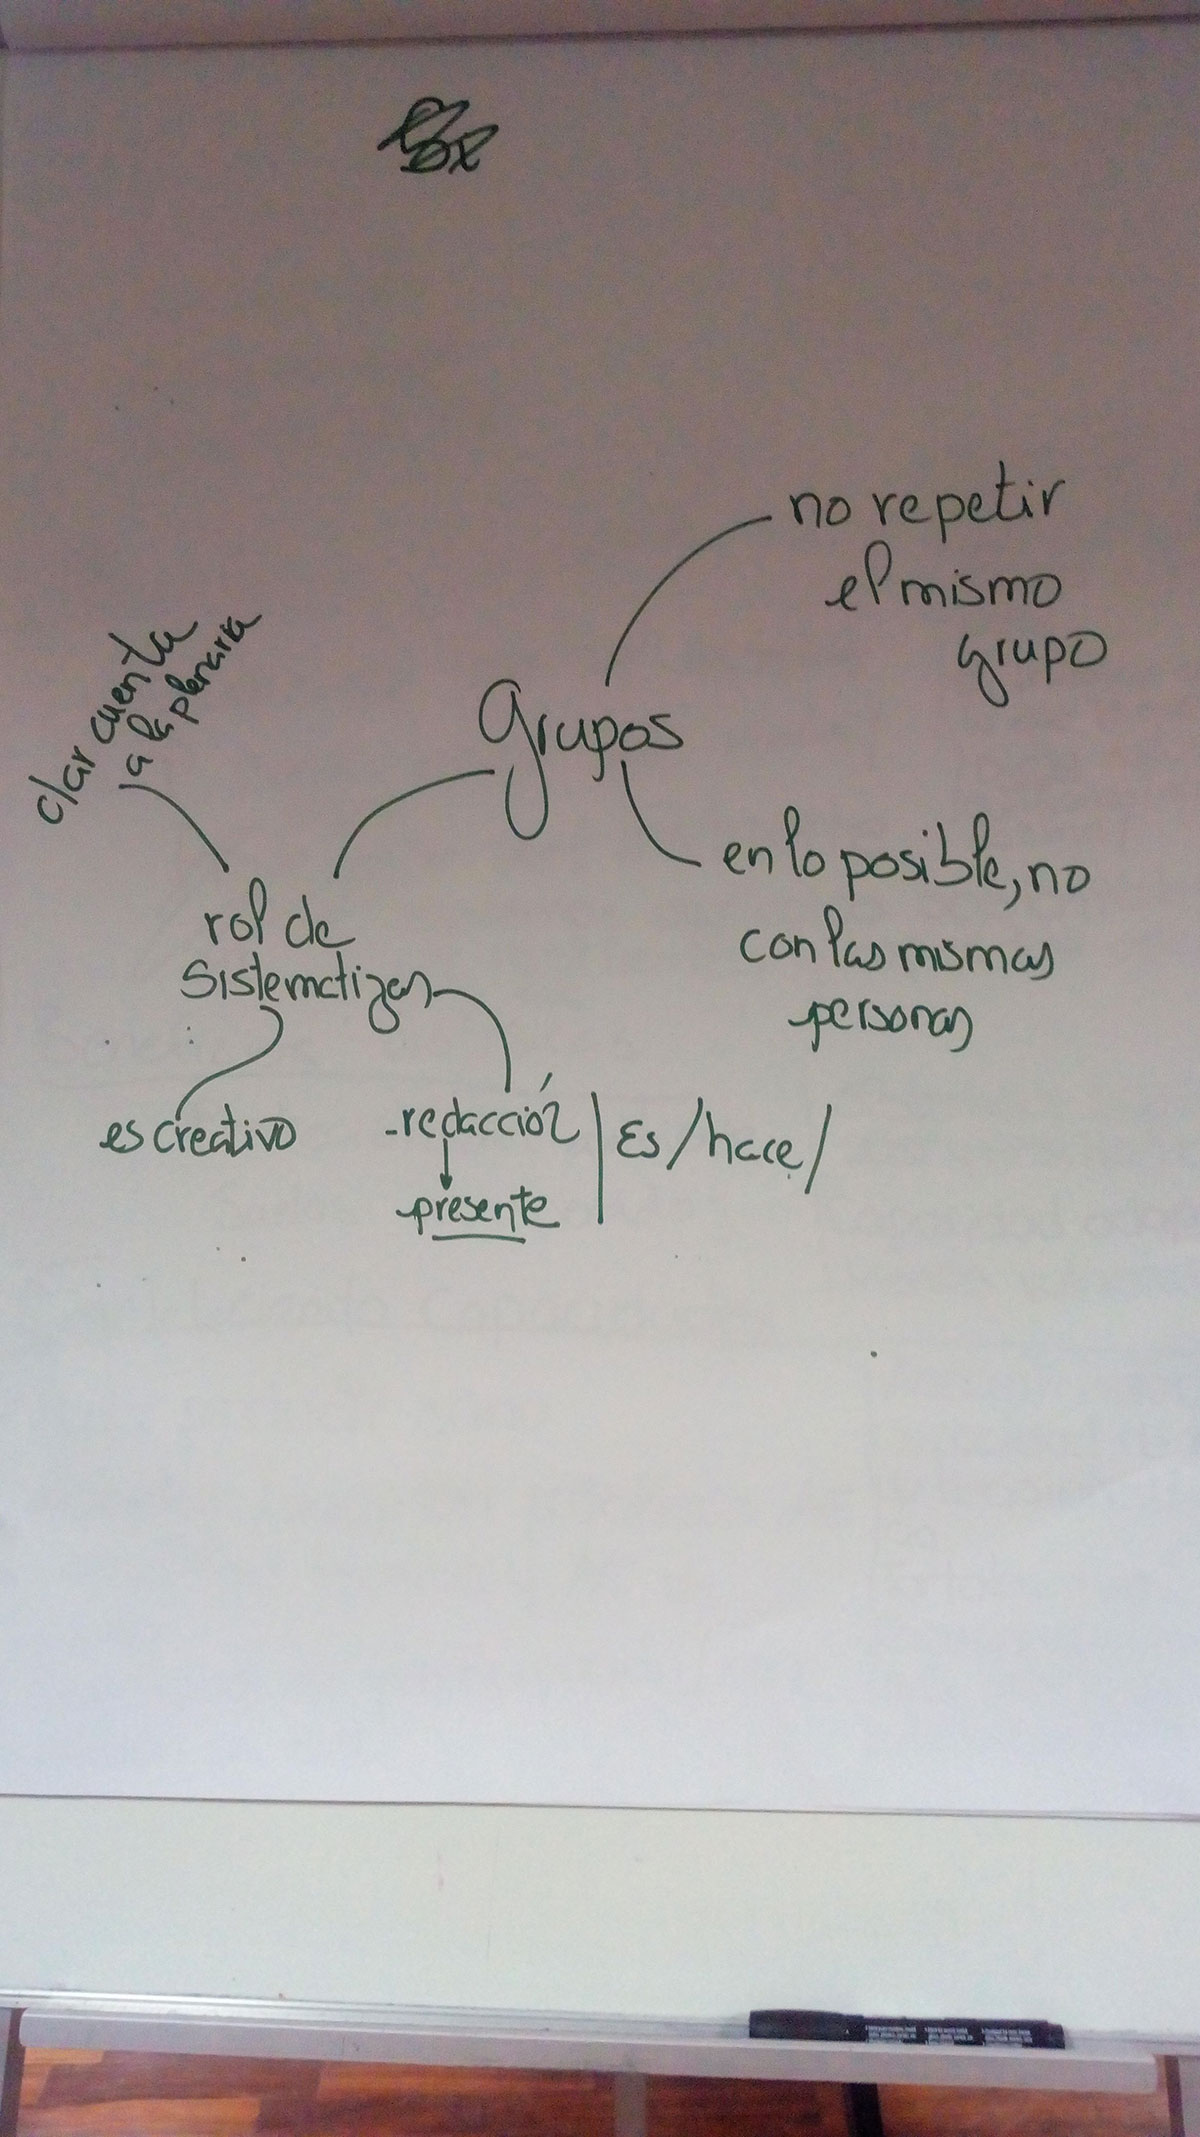 no repetir
el mismo
grupo
Grupos
dar cuenta
a la plenaria
en lo posible, no
con las mismas
personas
rol de
Sistematizar
es creativo
-redacción | Es / hace /
presente